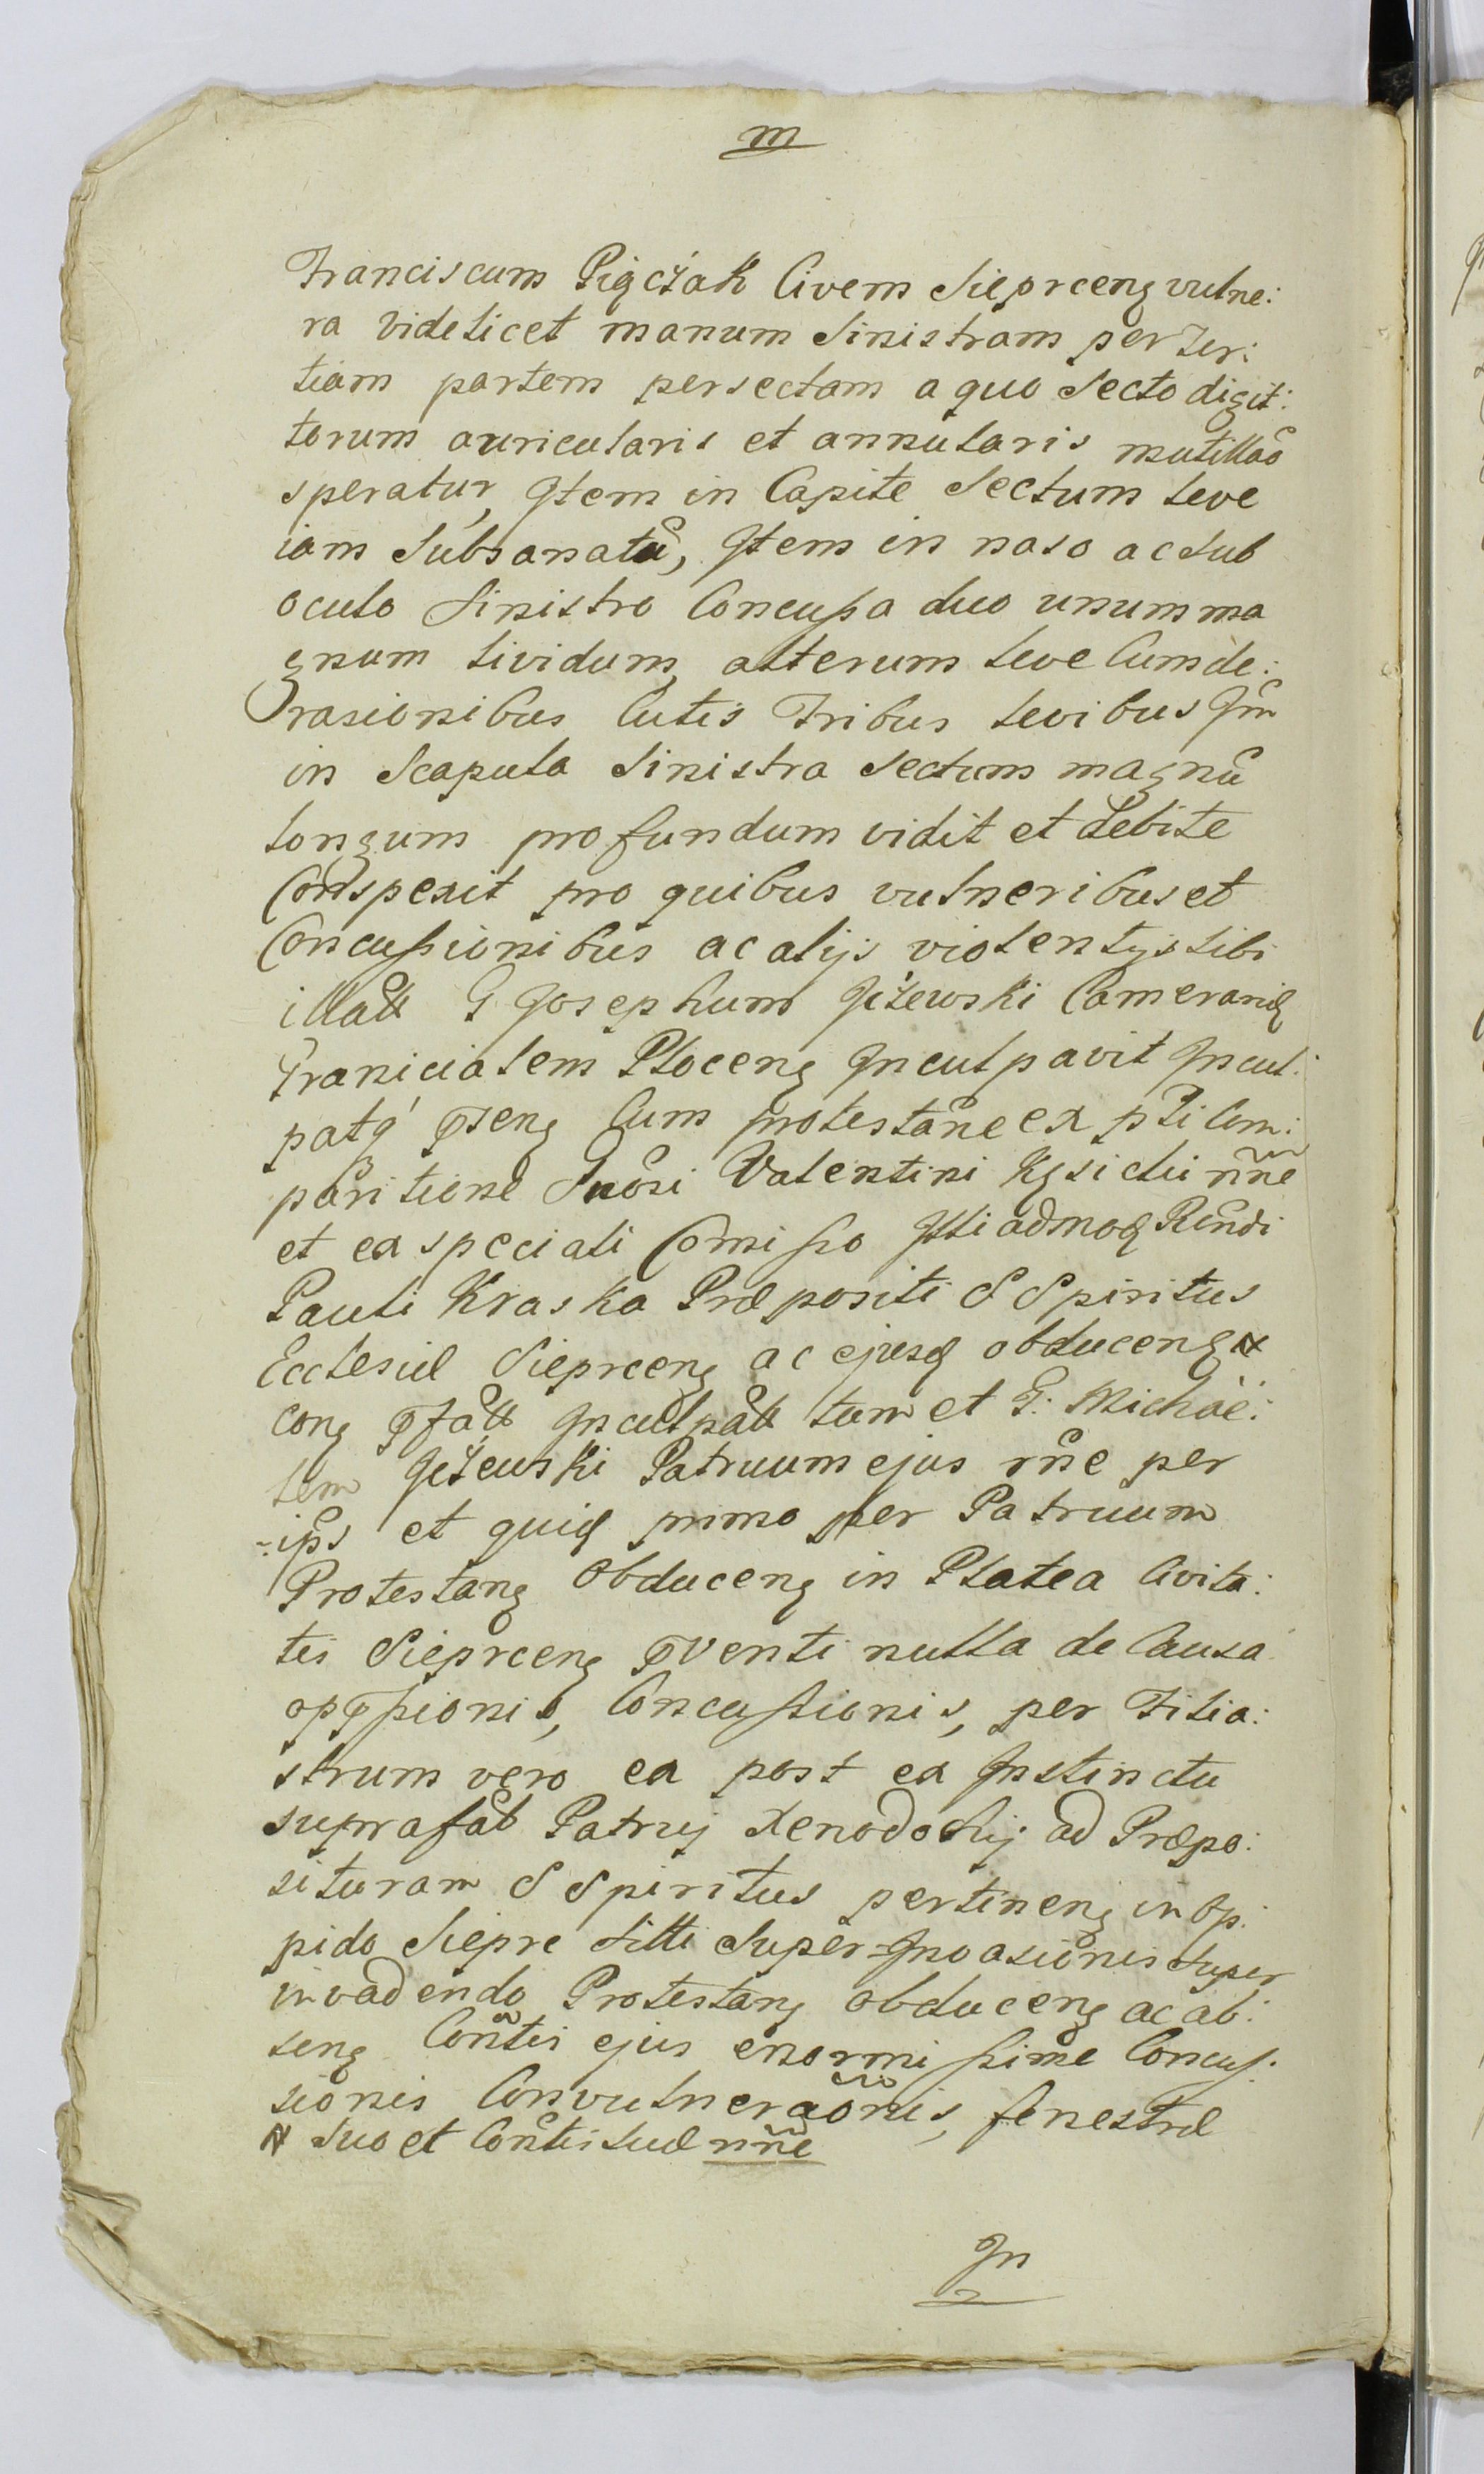 m
Franciscum Pięczak Civem Sieprceng vulne:
ra videlicet manum Sinistram per Ter:
tiam partem persectam a quo Secto digit:
torum auricularis et annularis mutillao
speratur, Item in Capite Sectum leve
iam Subsanatu, Item in naso ac sub
oculo Sinistro Concussa duo unum ma
gnum lividum, alterum leve Cum de:
rasionibus Cutis Tribus levibus Im
in Scapula Sinistra Sectum magnu
longum profundum vidit et debite
Conspexit pro quibus vulneribus et
Concussionibus ac alijs violentijs sibi
illatt G Josephum Jeżewski Camerariq
Graniciatem Ploceng Inculpavit Incul:
patq pseng Cum protestane ex pti Com:
paritione Valentini nne
et ex speciali Comisso Illi admoq Rendi
Pauli Kraska Præpositi S Spiritus
Ecclesiæ Sieprceng ac ejusq obduceng
cong pfatt Inculpatt tam et G: Michae:
lem Jeżewski Patruum ejus rne per
ips et quiq primo per Patruum
Protestang Obduceng in Platea Civita:
tis Sieprceng pventi nulla de Causa
oppssionis, Concussionis, per Filia:
strum vero ea post ex Instinctu
suprafat Patruj Xenodochij ad Præpo:
situram S Spiritus pertineng in Op:
pido Sieprc Sitti Super Invasionis super
invadendo Protestang obduceng ac ab:
seng Contis ejus enormissime Concus:
sionis Convulneraonis, fenestræ
suo et Contis suæ nne
In